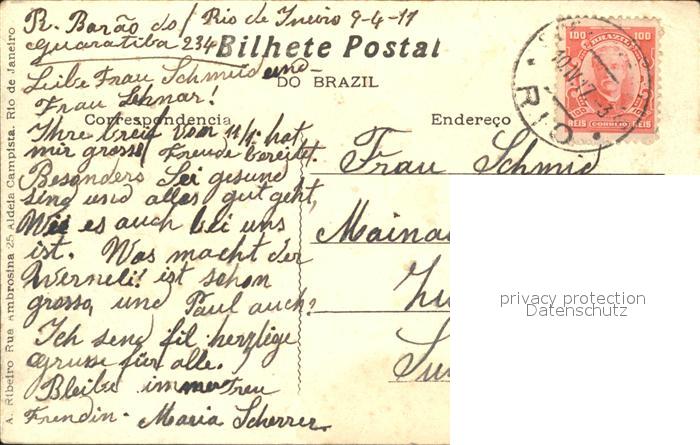 R. Barão do / Rio de Ineiro 9-4-17
guaratiba 234
Bilhete Postal
DO BRAZIL
Correspondencia
Endereço
Leibe Frau Schmid und
Frau Lehnar!
Ihre breif vom 11/1. hat,
mir grosse Freude bereitet.
Besonders Sei gesund
sind und alles gut geht,
Wei es auch bei uns
ist. Was macht der
Werneli! ist schon
grosso, und Paul auch?
Ich send fil herzlige
grusse für alle.
Bleibe immer treu
Frendin. Maria Scherrer.
Frau Schmid
A. Ribeiro Rua Ambrosina 25 Aldeia Campista. Rio de Janeiro
100 BRAZIL 100
REIS CORREIO REIS
RIO
privacy protection
Datenschutz